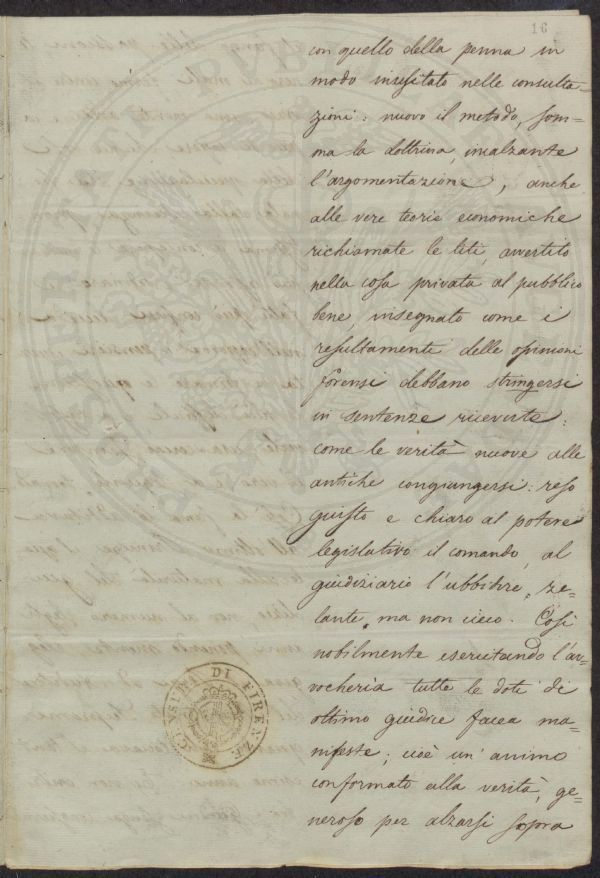 16
con quello della penna in
modo inusitato nelle consulta=
zioni: nuovo il metodo, som=
ma la dottrina, incalzante
l'argomentazione, anche
alle vere teorie economiche
richiamate le liti, avvertito
nella cosa privata al pubblico
bene, insegnato come i
resultamenti delle opinioni
forensi debbano stringersi
in sentenze riceverte:
come le verità nuove alle
antiche congiungersi: reso
giusto e chiaro al potere
legislativo il comando, al
giudiziario l'ubbidire, ze=
lante, ma non cieco. Così
nobilmente esercitando l'av=
vocheria tutte le doti di
ottimo giudice facea ma=
nifeste; cioè un' animo
conformato alla verità, ge=
neroso per alzarsi sopra
CENSURA DI FIRENZE